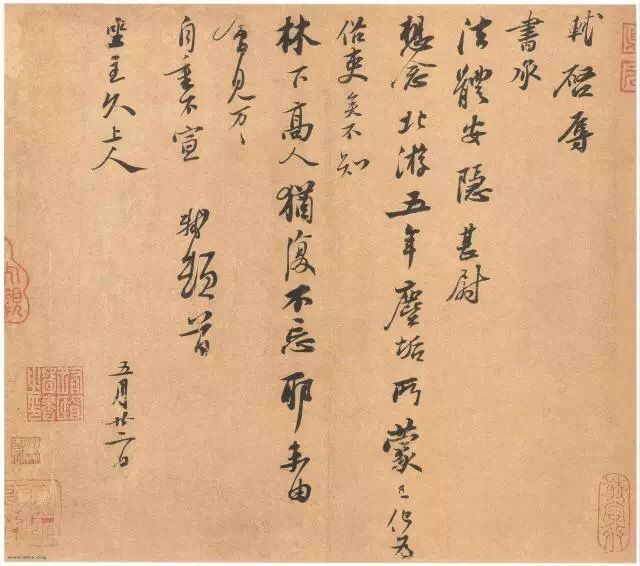 軾啓辱
書承
法體安隱甚尉
想念北游五年塵垢所蒙已化爲
俗吏矣不知
林下高人猶復不忘耶未由
會見万万
自重不宣 軾頓首
坐主久上人
五月廿二日